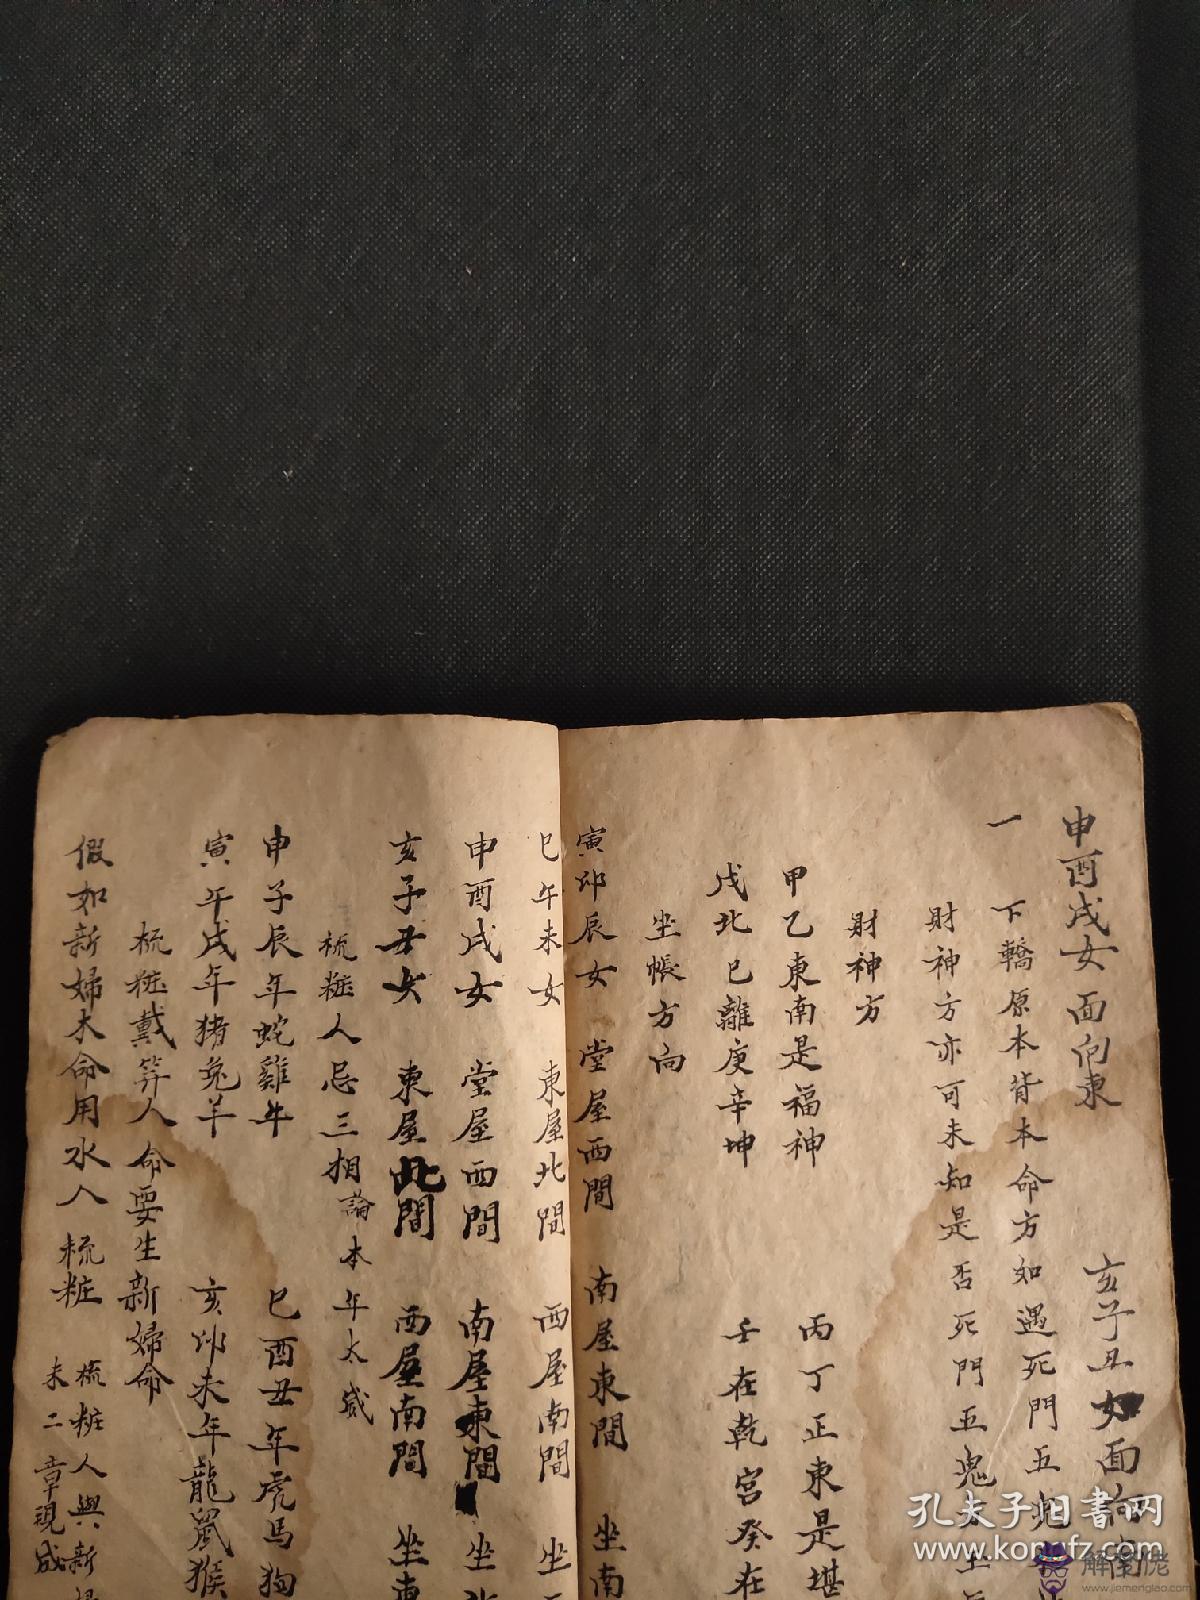 申酉戌女 面向東 亥子丑女面向南
一
下轎原本背本命方如遇死門五鬼
財神方亦可未知是否死門五鬼
財神方
甲乙東南是福神 丙丁正東是堪
戊北己離庚辛坤 壬在乾宮癸在
坐帳方向
寅卯辰女 堂屋西間 南屋東間 坐南
巳午未女 東屋北間 西屋南間 坐
申酉戌女 堂屋西間 南屋東間 坐北
亥子丑女 東屋北間 西屋南間 坐東
梳粧人忌三相論本年太歲
申子辰年蛇雞牛 巳酉丑年虎馬狗
寅午戌年猪兔羊 亥卯未年龍鼠猴
梳粧戴笄人命要生新婦命
假如新婦木命用水人梳粧
梳粧人與新婦
未二章現成
孔夫子旧书网
www.kongfz.com
解夢佬
www.jiemenglao.com